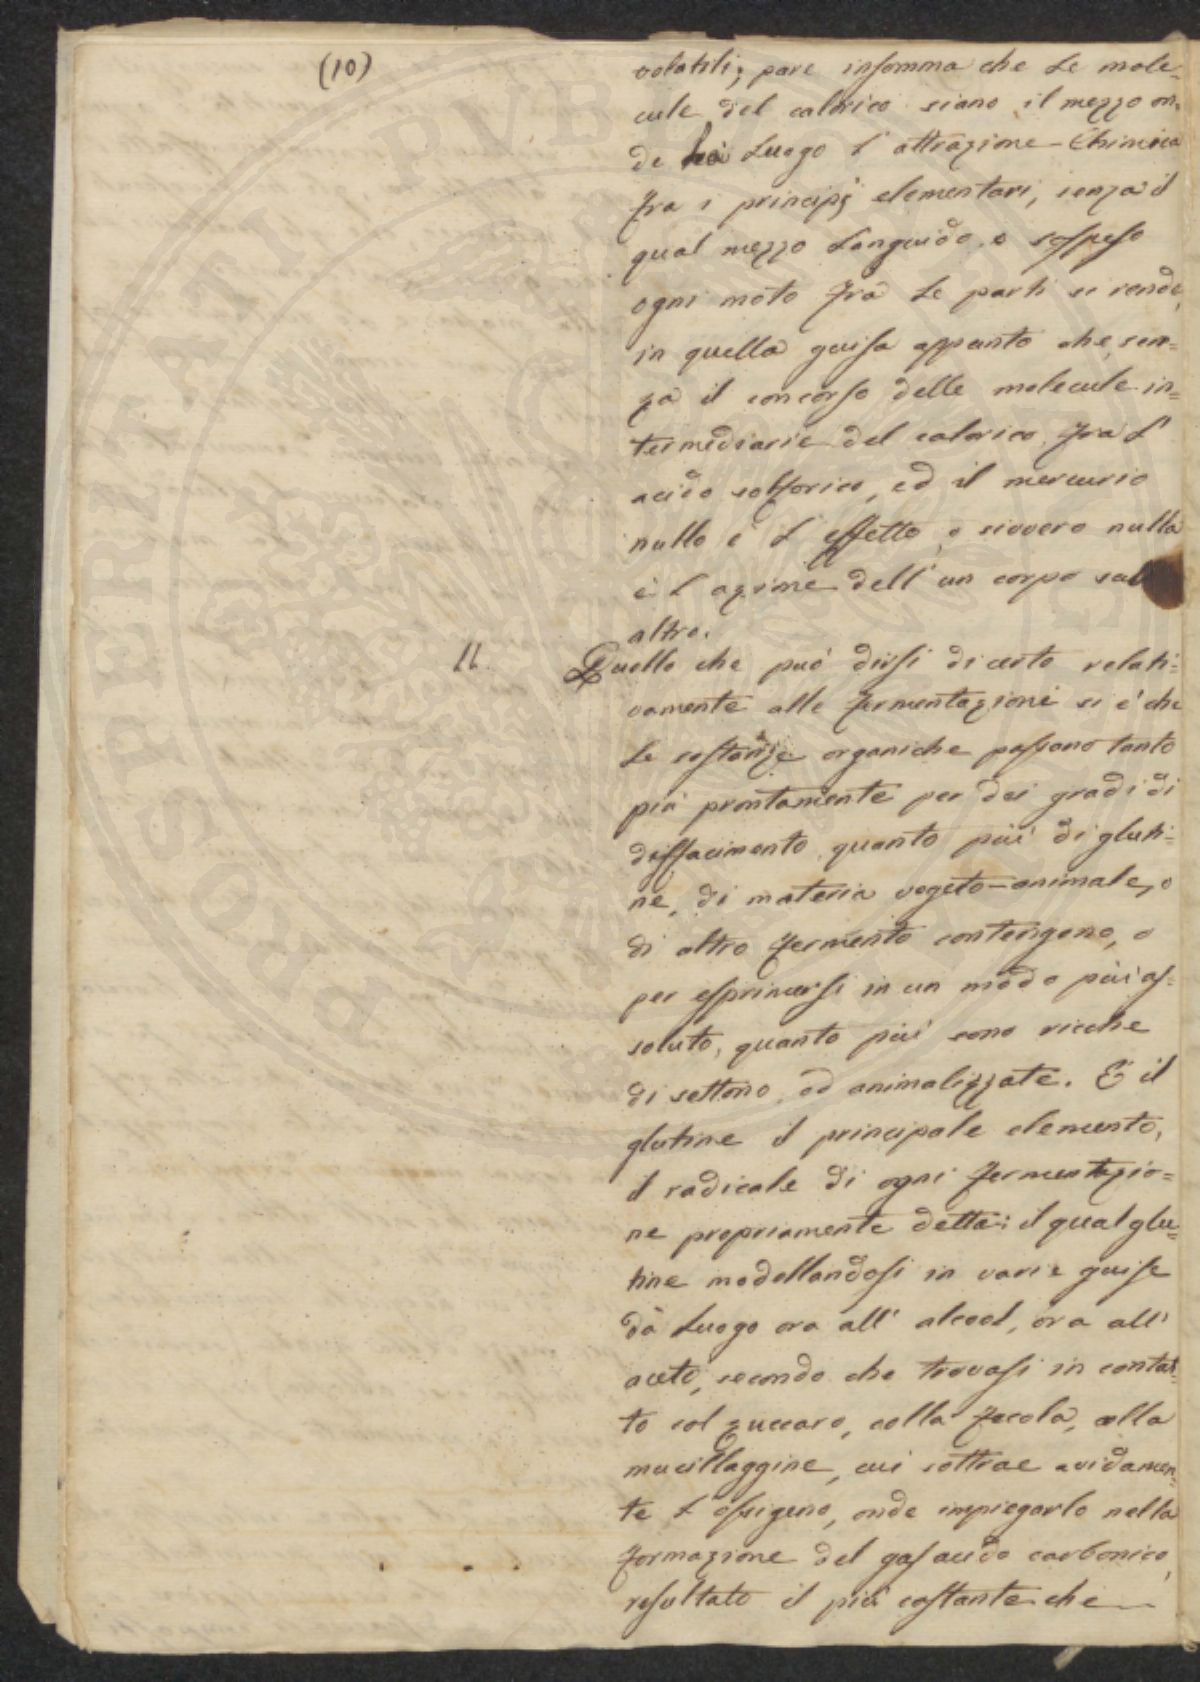 (10)
volatili; pare insomma che le mole-
cule del calorico siano il mezzo on-
de ha luogo l'attrazione-Chimica
fra i principj elementari, senza il
qual mezzo languido e sospeso
ogni moto fra le parti si rende,
in quella guisa appunto che sen-
za il concorso delle molecule in-
termediarie del calorico fra l'
acido solforico, ed il mercurio
nullo è l'effetto, o sivvero nulla
è l'azione dell'un corpo sull
altro.
11. Quello che può dirsi di certo relati-
vamente alle fermentazioni si è che
le sostanze organiche passano tanto
più prontamente per dei gradi di
disfacimento quanto più di gluti-
ne, di materia vegeto-animale, o
di altro fermento contengono, o
per esprimersi in un modo più as-
soluto, quanto più sono ricche
di settono, ed animalizzate. È il
glutine il principale elemento,
il radicale di ogni fermentazio-
ne propriamente detta: il qual glu-
tine modellandosi in varie guise
dà luogo ora all'alcool, ora all'
aceto, secondo che trovasi in contat-
to col zuccaro, colla fecola, colla
mucillaggine, cui sottrae avidamen-
te l'ossigeno, onde impiegarlo nella
formazione del gas acido carbonico,
resultato il più costante che
PROSPERITATI PVBLICAE